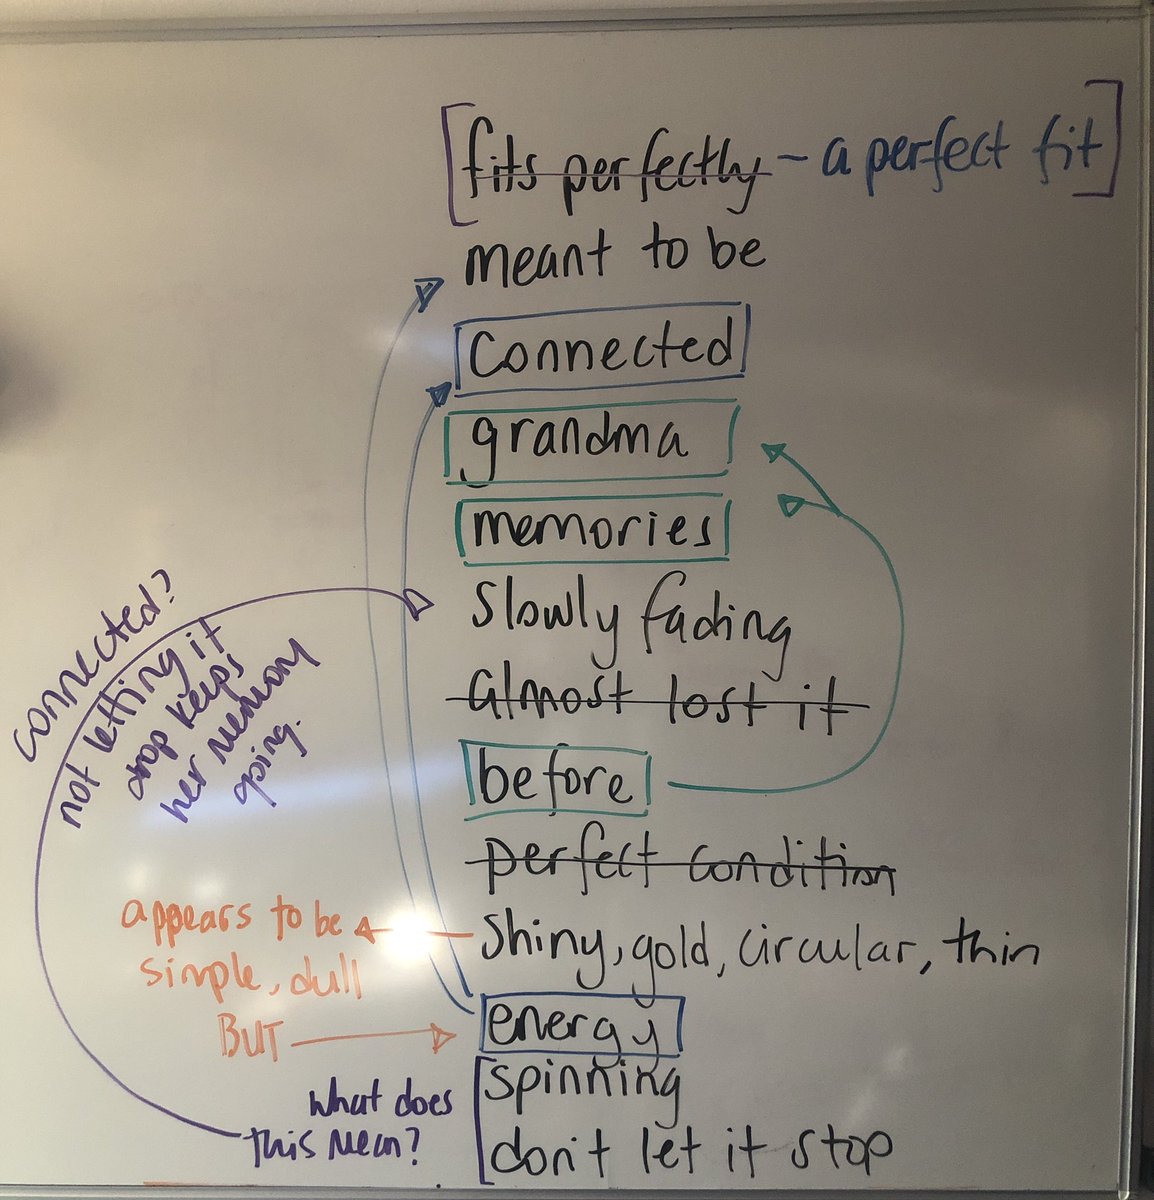 [fits perfectly - a perfect fit]
meant to be
connected
grandma
memories
slowly fading
almost lost it
before
perfect condition
shiny, gold, circular, thin
energy
spinning
don't let it stop
connected?
not letting it
drop keeps
her memory
going.
appears to be
simple, dull
BUT
What does
this mean?